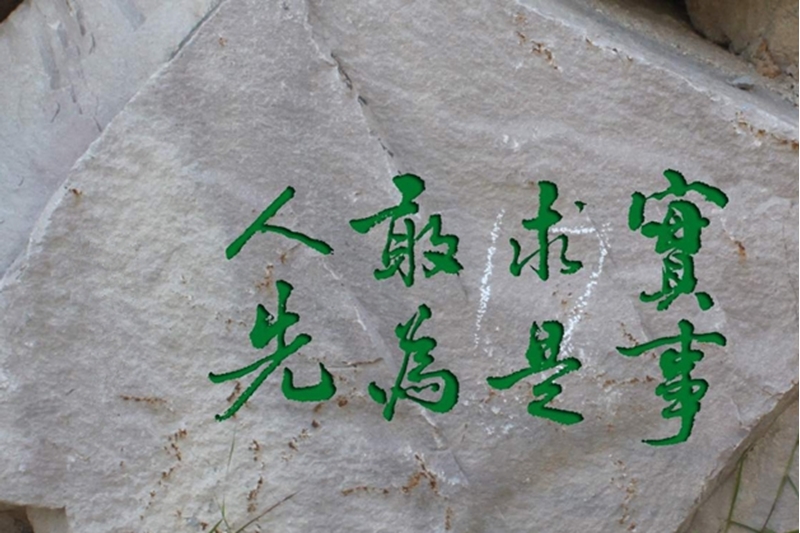 實事
求是
敢為
人先